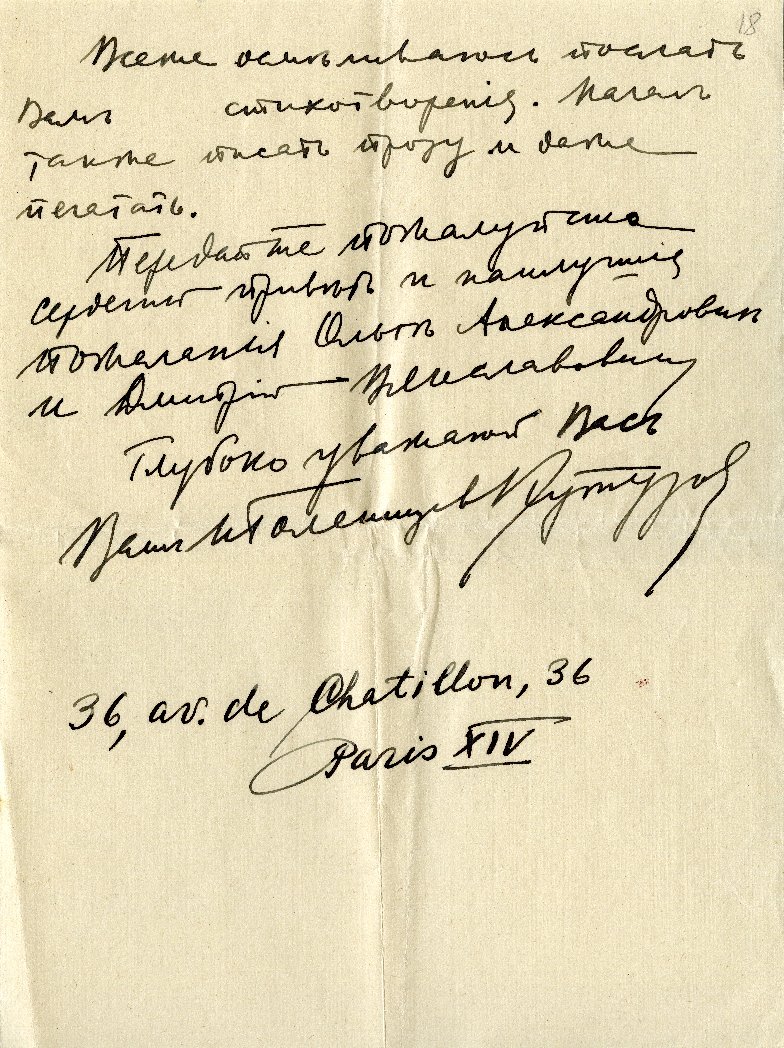 18
Всеже осмѣливаюсь послать
Вамъ стихотворенія. Началъ
также писать прозу и даже
печатать.
Передайте пожалуйста
сердечный привѣтъ и наилучшія
пожеланія Ольгѣ Александровнѣ
и Дмитрію Вячеславовичу
Глубоко уважающій Васъ
Вашъ И Голенищев Кутузов
36, av. de Chatillon, 36
Paris XIV